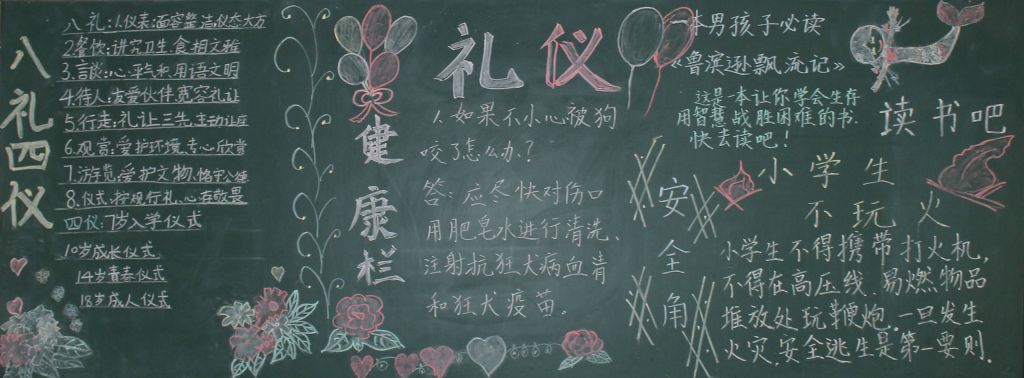 八礼四仪
八礼:1.仪表:面容整洁,仪态大方
2.餐饮:讲究卫生,食相文雅
3.言谈:心平气和,用语文明
4.待人:友爱伙伴,宽容礼让
5.行走:礼让三先,主动让座
6.观赏:爱护环境,专心欣赏
7.游览:爱护文物,恪守公德
8.仪式:按规行礼,心存敬畏
四仪:7岁入学仪式
10岁成长仪式
14岁青春仪式
18岁成人仪式
礼仪
健康栏
1.如果不小心被狗
咬了怎么办?
答:应尽快对伤口
用肥皂水进行清洗、
注射抗狂犬病血清
和狂犬疫苗。
一本男孩子必读
《鲁滨逊飘流记》
这是一本让你学会生存
用智慧战胜困难的书.
快去读吧!
读书吧
安全角
小学生
不玩火
小学生不得携带打火机,
不得在高压线、易燃物品
堆放处玩鞭炮.一旦发生
火灾,安全逃生是第一要则.